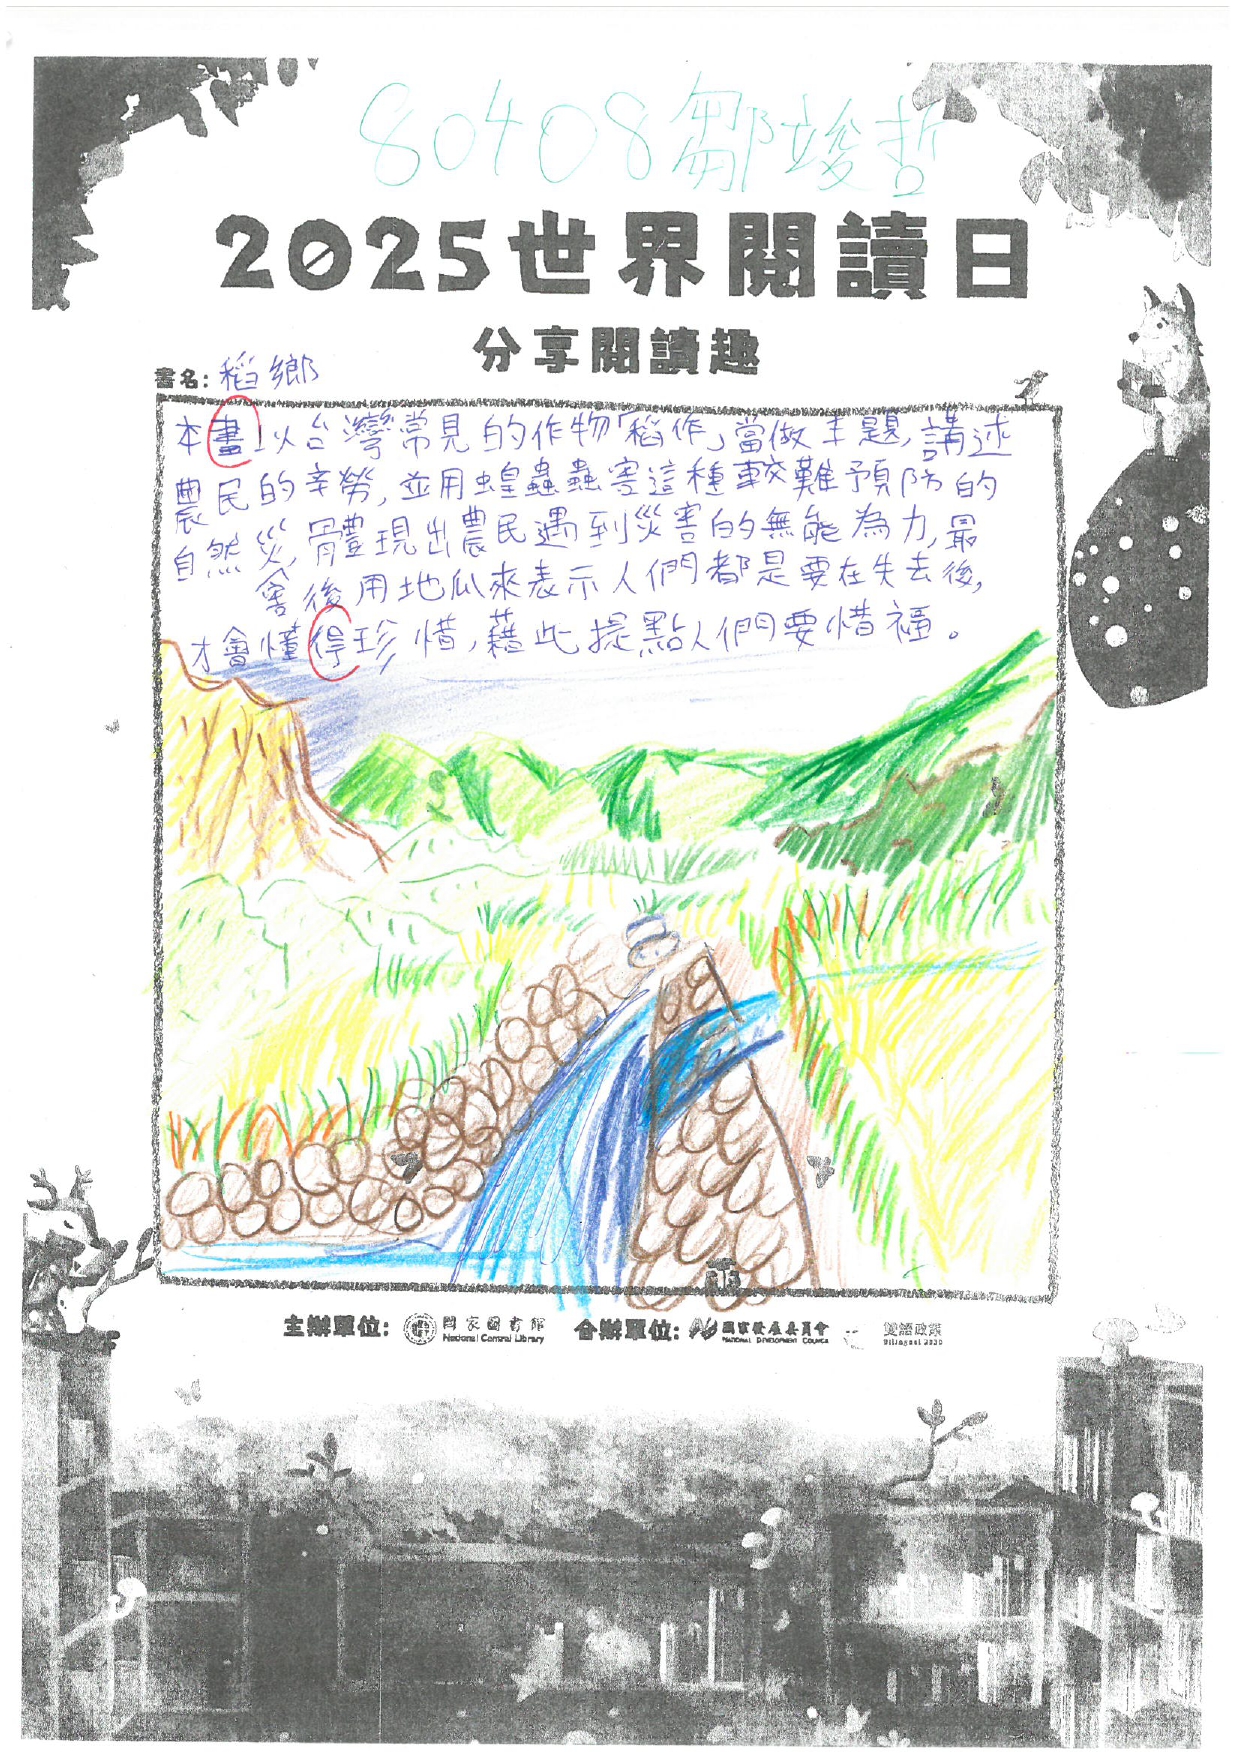 80408鄒竣哲
2025世界閱讀日
分享閱讀趣
書名:稻鄉
本畫以台灣常見的作物「稻作」當做主題,講述
農民的辛勞,並用蝗蟲蟲害這種較難預防的
自然災害,體現出農民遇到災害的無能為力,最
後用地瓜來表示人們都是要在失去後,
才會懂得珍惜,藉此提點人們要惜福。
主辦單位: 國家圖書館 National Central Library 合辦單位: 國家發展委員會 NATIONAL DEVELOPMENT COUNCIL 雙語政策 Bilingual 2030